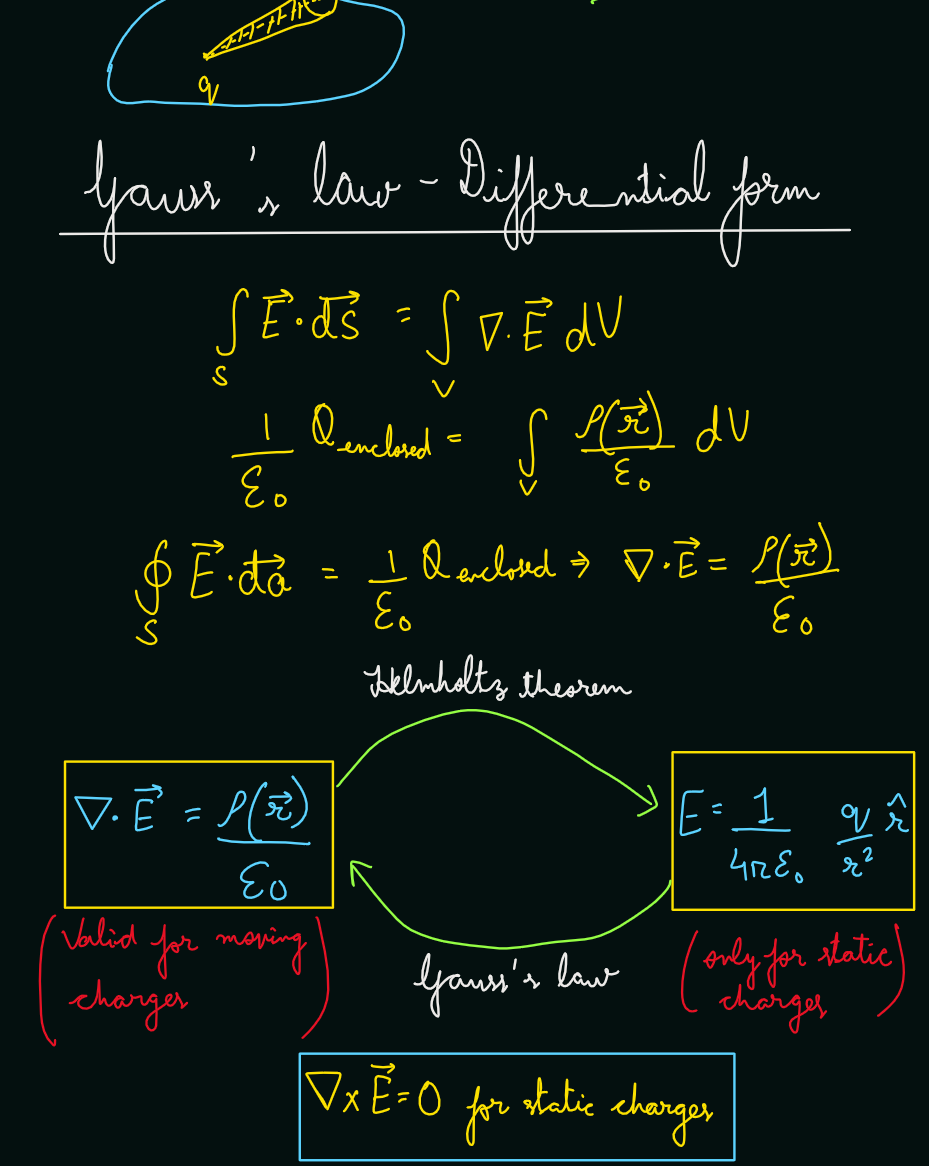 q
Gauss's law - Differential form
∫_S E⃗·ds⃗ = ∫_V ∇·E⃗ dV
1/ε₀ Q_enclosed = ∫_V ρ(r⃗)/ε₀ dV
∮_S E⃗·da⃗ = 1/ε₀ Q_enclosed ⇒ ∇·E⃗ = ρ(r⃗)/ε₀
Helmholtz theorem
∇·E⃗ = ρ(r⃗)/ε₀
E = 1/4πε₀ q/r² r̂
(Valid for moving
charges)
(only for static
charges)
Gauss's law
∇×E⃗=0 for static charges